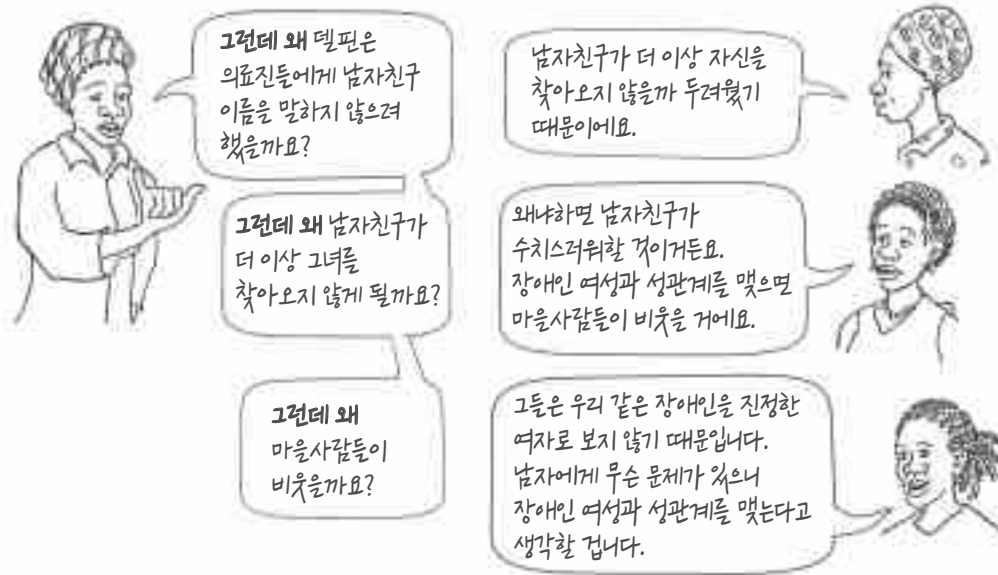 그런데 왜 델핀은
의료진들에게 남자친구
이름을 말하지 않으려
했을까요?
남자친구가 더 이상 자신을
찾아오지 않을까 두려웠기
때문이에요.
그런데 왜 남자친구가
더 이상 그녀를
찾아오지 않게 될까요?
왜냐하면 남자친구가
수치스러워할 것이거든요.
장애인 여성과 성관계를 맺으면
마을사람들이 비웃을 거에요.
그런데 왜
마을사람들이
비웃을까요?
그들은 우리 같은 장애인을 진정한
여자로 보지 않기 때문입니다.
남자에게 무슨 문제가 있으니
장애인 여성과 성관계를 맺는다고
생각할 겁니다.